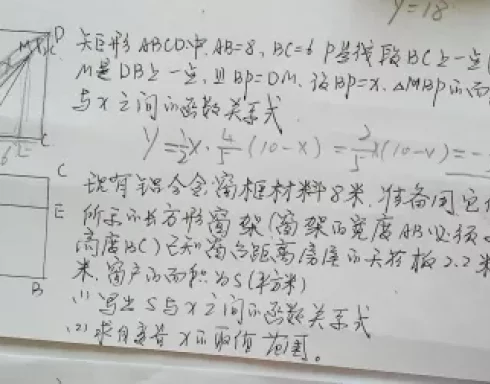 y=18
D
M
矩形ABCD中,AB=8,BC=6 P是线段BC上一点
M是DB上一点,且BP=DM,设BP=x,△MBP的面
与x之间的函数关系式
y=½x·4/5(10-x)=2/5x(10-x)=-
C
6
C
E
B
现有铝合金窗框材料8米,准备用它
所示的长方形窗架(窗架的宽度AB必须
高度BC)已知窗台距离房屋的天花板2.2米
米,窗户的面积为S(平方米)
(1) 写出S与x之间的函数关系式
(2) 求自变量x的取值范围。